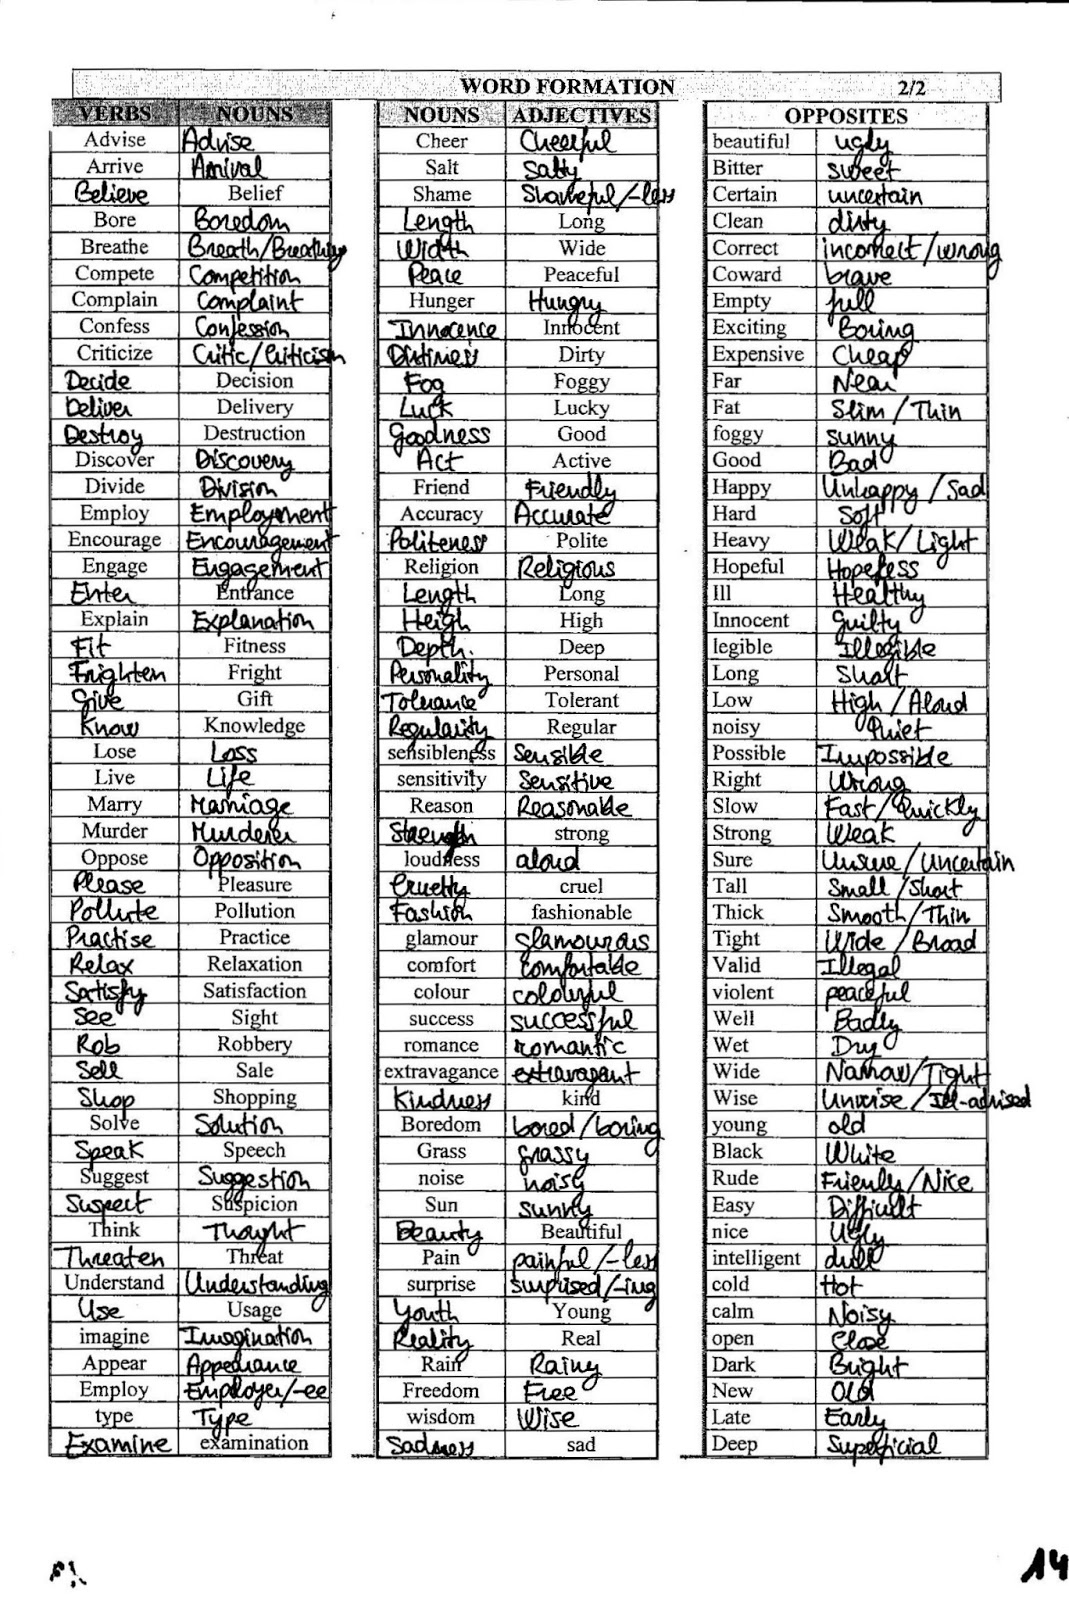 WORD FORMATION 2/2
VERBS NOUNS NOUNS ADJECTIVES OPPOSITES
Advise Advise Cheer Cheerful beautiful ugly
Arrive Arrival Salt Salty Bitter sweet
Believe Belief Shame Shameful/-less Certain uncertain
Bore Boredom Length Long Clean dirty
Breathe Breath/Breathing Width Wide Correct incorrect/wrong
Compete Competition Peace Peaceful Coward brave
Complain Complaint Hunger Hungry Empty full
Confess Confession Innocence Innocent Exciting Boring
Criticize Critic/Criticism Dirtiness Dirty Expensive Cheap
Decide Decision Fog Foggy Far Near
Deliver Delivery Luck Lucky Fat Slim/Thin
Destroy Destruction Goodness Good foggy sunny
Discover Discovery Act Active Good Bad
Divide Division Friend Friendly Happy Unhappy/Sad
Employ Employement Accuracy Accurate Hard Soft
Encourage Encouragement Politeness Polite Heavy Weak/Light
Engage Engagement Religion Religious Hopeful Hopeless
Enter Entrance Length Long Ill Healthy
Explain Explanation Heigh High Innocent guilty
Fit Fitness Depth. Deep legible Illegible
Frighten Fright Personality Personal Long Short
Give Gift Tolerance Tolerant Low High/Aloud
Know Knowledge Regularity Regular noisy Quiet
Lose Loss sensibleness Sensible Possible Impossible
Live Life sensitivity Sensitive Right Wrong
Marry Marriage Reason Reasonable Slow Fast/Quickly
Murder Murderer Strength strong Strong Weak
Oppose Opposition loudness aloud Sure Unsure/Uncertain
Please Pleasure Cruelty cruel Tall Small/Short
Pollute Pollution Fashion fashionable Thick Smooth/Thin
Practise Practice glamour glamourous Tight Wide/Broad
Relax Relaxation comfort comfortable Valid Illegal
Satisfy Satisfaction colour colourful violent peaceful
See Sight success successful Well Badly
Rob Robbery romance romantic Wet Dry
Sell Sale extravagance extravagant Wide Narrow/Tight
Shop Shopping Kindness kind Wise Unwise/Ill-advised
Solve Solution Boredom bored/boring young old
Speak Speech Grass grassy Black White
Suggest Suggestion noise noisy Rude Frienly/Nice
Suspect Suspicion Sun sunny Easy Difficult
Think Thought Beauty Beautiful nice Ugly
Threaten Threat Pain painful/-less intelligent dull
Understand Understanding surprise surprised/-ing cold Hot
Use Usage Youth Young calm Noisy
imagine Imagination Reality Real open Close
Appear Appearance Rain Rainy Dark Bright
Employ Employer/-ee Freedom Free New Old
type Type wisdom Wise Late Early
Examine examination Sadness sad Deep Superficial
14